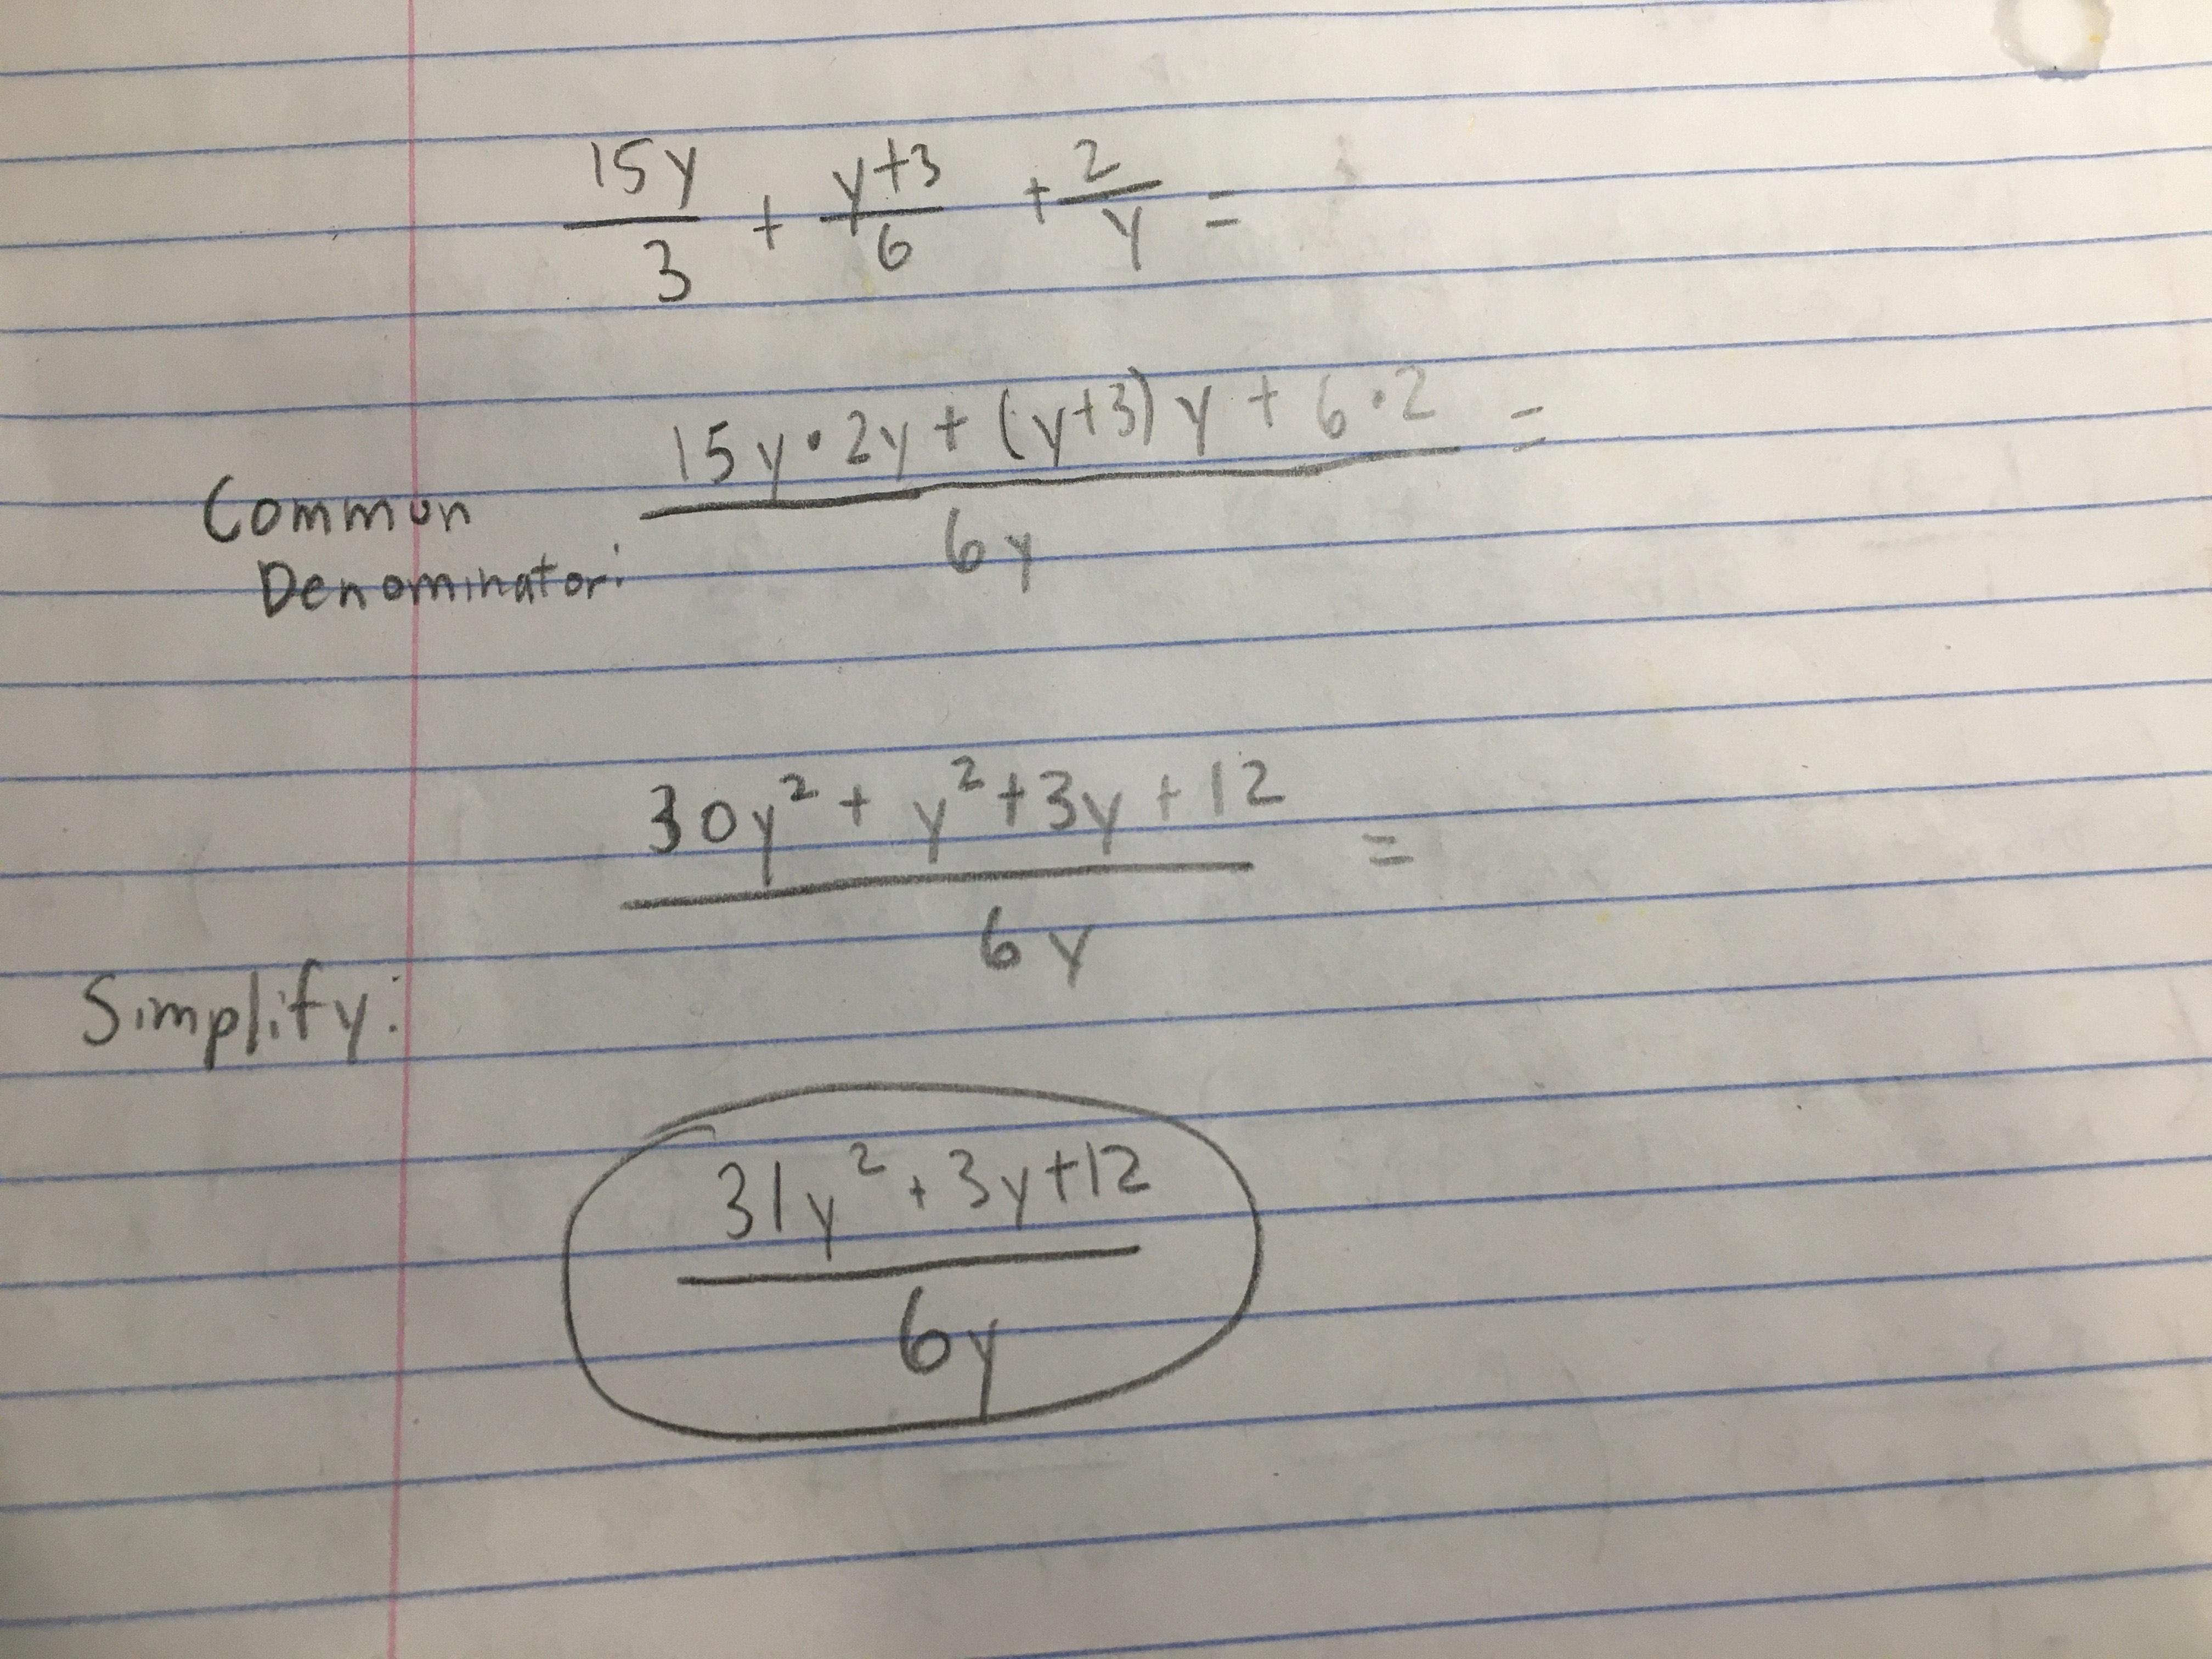 15y/3 + y+3/6 + 2/y =
Common Denominator: 15y·2y + (y+3)y + 6·2 / 6y =
30y² + y² + 3y + 12 / 6y =
Simplify:
31y² + 3y + 12 / 6y